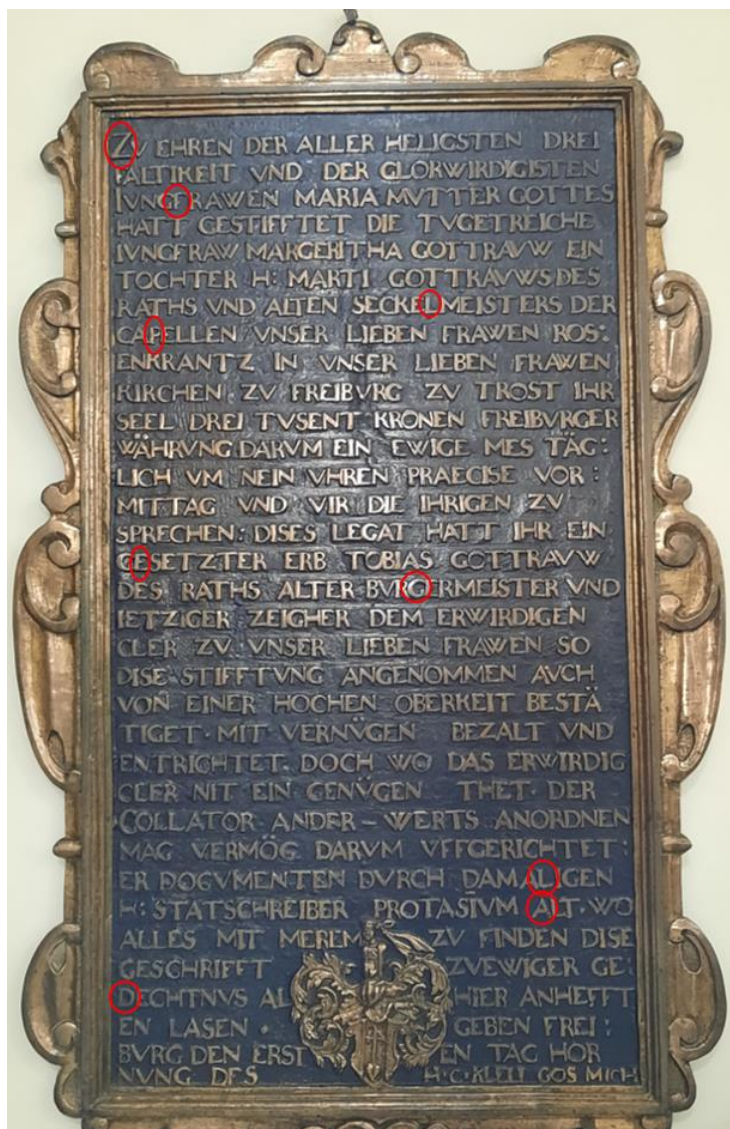 ZV EHREN DER ALLER HELIGSTEN DREI
FALTIKEIT VND DER GLORWIRDIGISTEN
IVNGFRAWEN MARIA MVTTER GOTTES
HATT GESTIFFTET DIE TVGETREICHE
IVNGFRAW MARGERITHA GOTTRAVW EIN
TOCHTER H: MARTI GOTTRAVWS DES
RATHS VND ALTEN SECKELMEISTERS DER
CAPELLEN VNSER LIEBEN FRAWEN ROS:
ENKRANTZ IN VNSER LIEBEN FRAWEN
KIRCHEN ZV FREIBVRG ZV TROST IHR
SEEL DREI TVSENT KRONEN FREIBVRGER
WÄHRVNG DARVM EIN EWIGE MES TÄG:
LICH VM NEIN VHREN PRAECISE VOR:
MITTAG VND VIR DIE IHRIGEN ZV
SPRECHEN: DISES LEGAT HATT IHR EIN
GESETZTER ERB TOBIAS GOTTRAVW
DES RATHS ALTER BVRGERMEISTER VND
IETZIGER ZEIGHER DEM ERWIRDIGEN
CLER ZV VNSER LIEBEN FRAWEN SO
DISE STIFFTVNG ANGENOMMEN AVCH
VON EINER HOCHEN OBERKEIT BESTÄ
TIGET · MIT VERNVGEN BEZALT VND
ENTRICHTET. DOCH WO DAS ERWIRDIG
CLER NIT EIN GENVGEN THET · DER
COLLATOR ANDER-WERTS ANORDNEN
MAG VERMÖG DARVM VFFGERICHTET:
ER DOCVMENTEN DVRCH DAMALIGEN
H: STATSCHREIBER PROTASIVM ALT · WO
ALLES MIT MEREM ZV FINDEN DISE
GESCHRIFFT ZVEWIGER GE:
DECHTNVS AL HIER ANHEFFT
EN LASEN · GEBEN FREI:
BVRG DEN ERST EN TAG HOR
NVNG DES H·C·KLELI GOS MICH